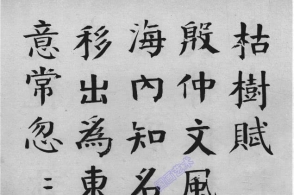 枯樹賦
殷仲文風
海內知名
移出為東
意常忽〻